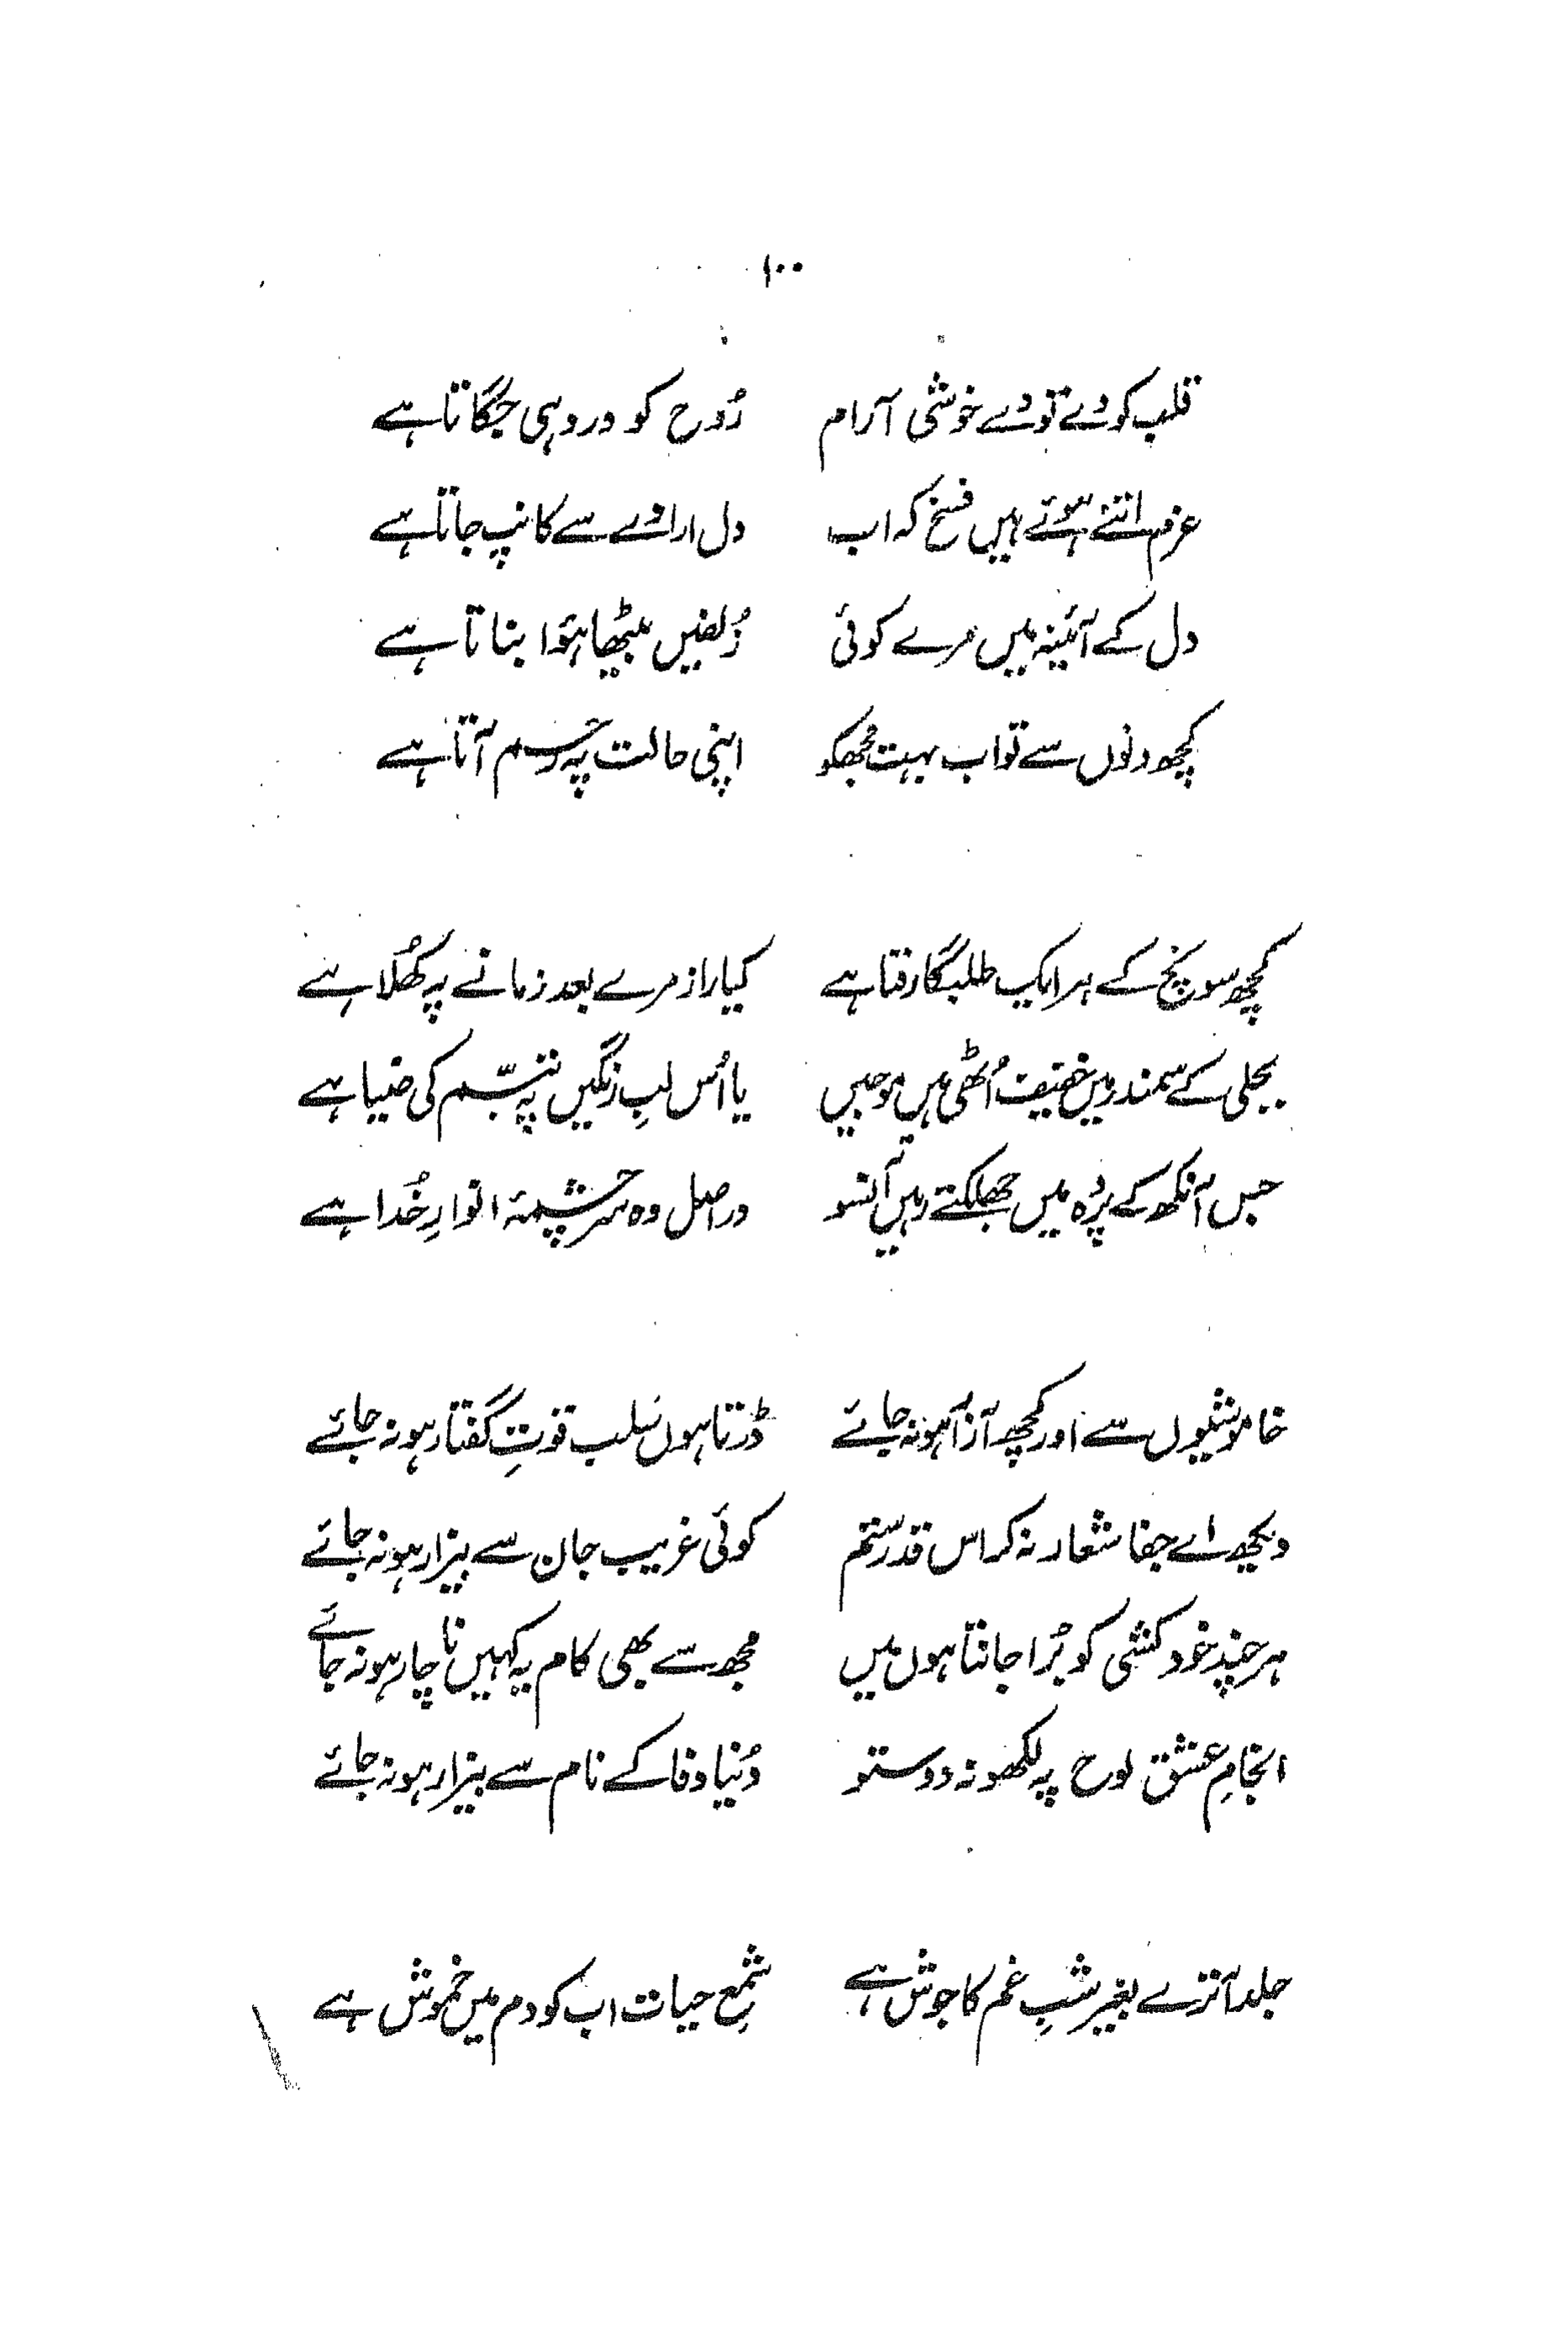 ۱۰۰
قلب کو دے تو دے خوشی آرام رُوح کو درد ہی جگاتا ہے
عزم اتنے ہوئے ہیں فسخ کہ اب دل ارادے سے کانپ جاتا ہے
دل کے آئینہ میں مرے کوئی زُلفیں بیٹھا ہؤا بناتا ہے
کچھ دنوں سے تو اب بہت مجھکو اپنی حالت پہ رحم آتا ہے
کچھ سوچ کے ہر ایک طلبگارِ فنا ہے کیا راز مرے بعد زمانے پہ کھُلا ہے
بجلی کے سمندر میں خفیف اُٹھی ہیں موجیں یا اُس لبِ رنگیں پہ تبسّم کی ضیا ہے
جس آنکھ کے پردُہ میں جھلکتے رہیں آنسو دراصل وہ سرچشمۂ انوارِ خُدا ہے
خاموشیوں سے اور کچھ آزار ہو نہ جائے ڈرتا ہوں سَلب قوتِ گفتار ہو نہ جائے
دیکھ اے جفا شعار نہ کر اس قدر ستم کوئی غریب جان سے بیزار ہو نہ جائے
ہر چند خودکشی کو بُرا جانتا ہوں میں مجھ سے بھی کام یہ کہیں ناچار ہو نہ جائے
انجامِ عشق لوح پہ لکھو نہ دوستو دُنیا وفا کے نام سے بیزار ہو نہ جائے
جلد آ ترے بغیر شبِ غم کا جوش ہے شمِع حیات اب کو دم میں خموش ہے